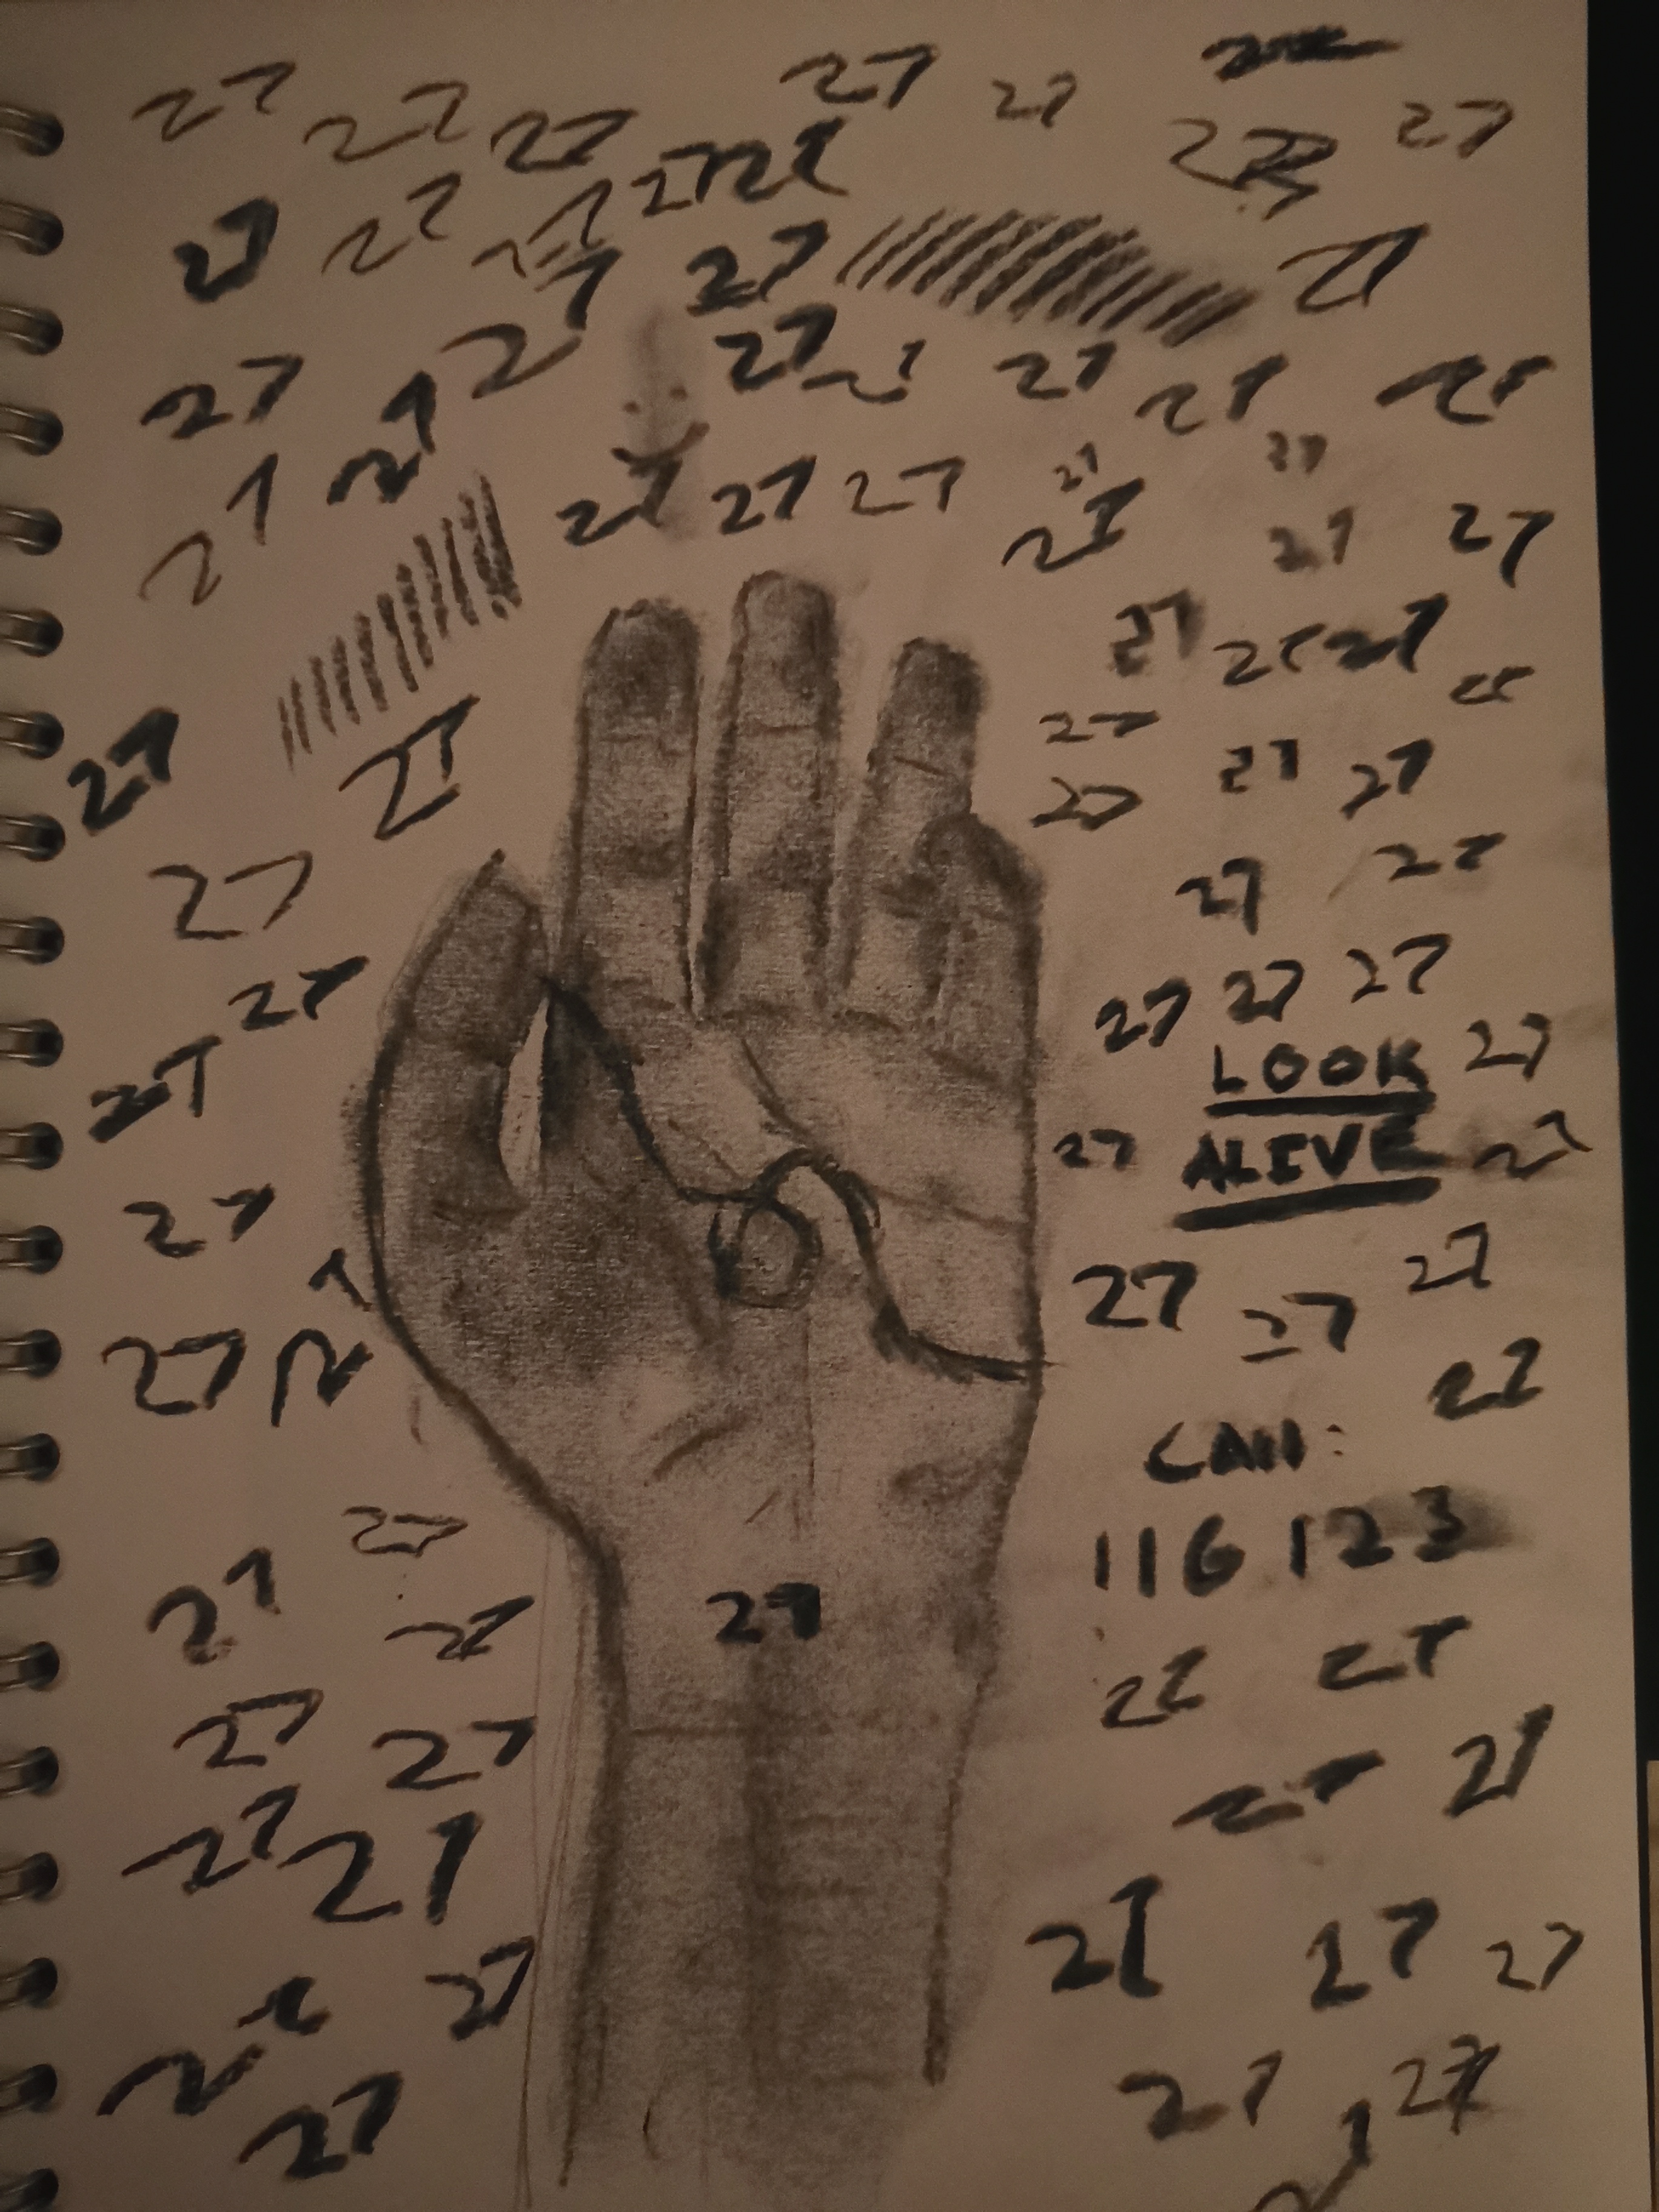 27 27 27 27 27 27
27 27 27
27 27 27 27
27 27 27 27
27 27 27 27
27 27 27
27 27
27 27
27 27
27 27 27
27 27 27
LOOK 27
27 27 ALIVE
27 27 27
27 27
CALL:
116 123
27 27 27
27 27
27 27 27
27 27
27 27 27 27
27 27 27